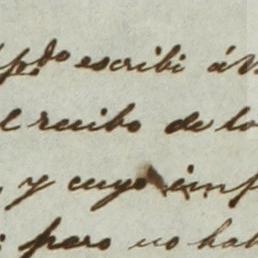 ppdo escribi á V
l recibo de lo
, y cuyo imp
; pero no hab